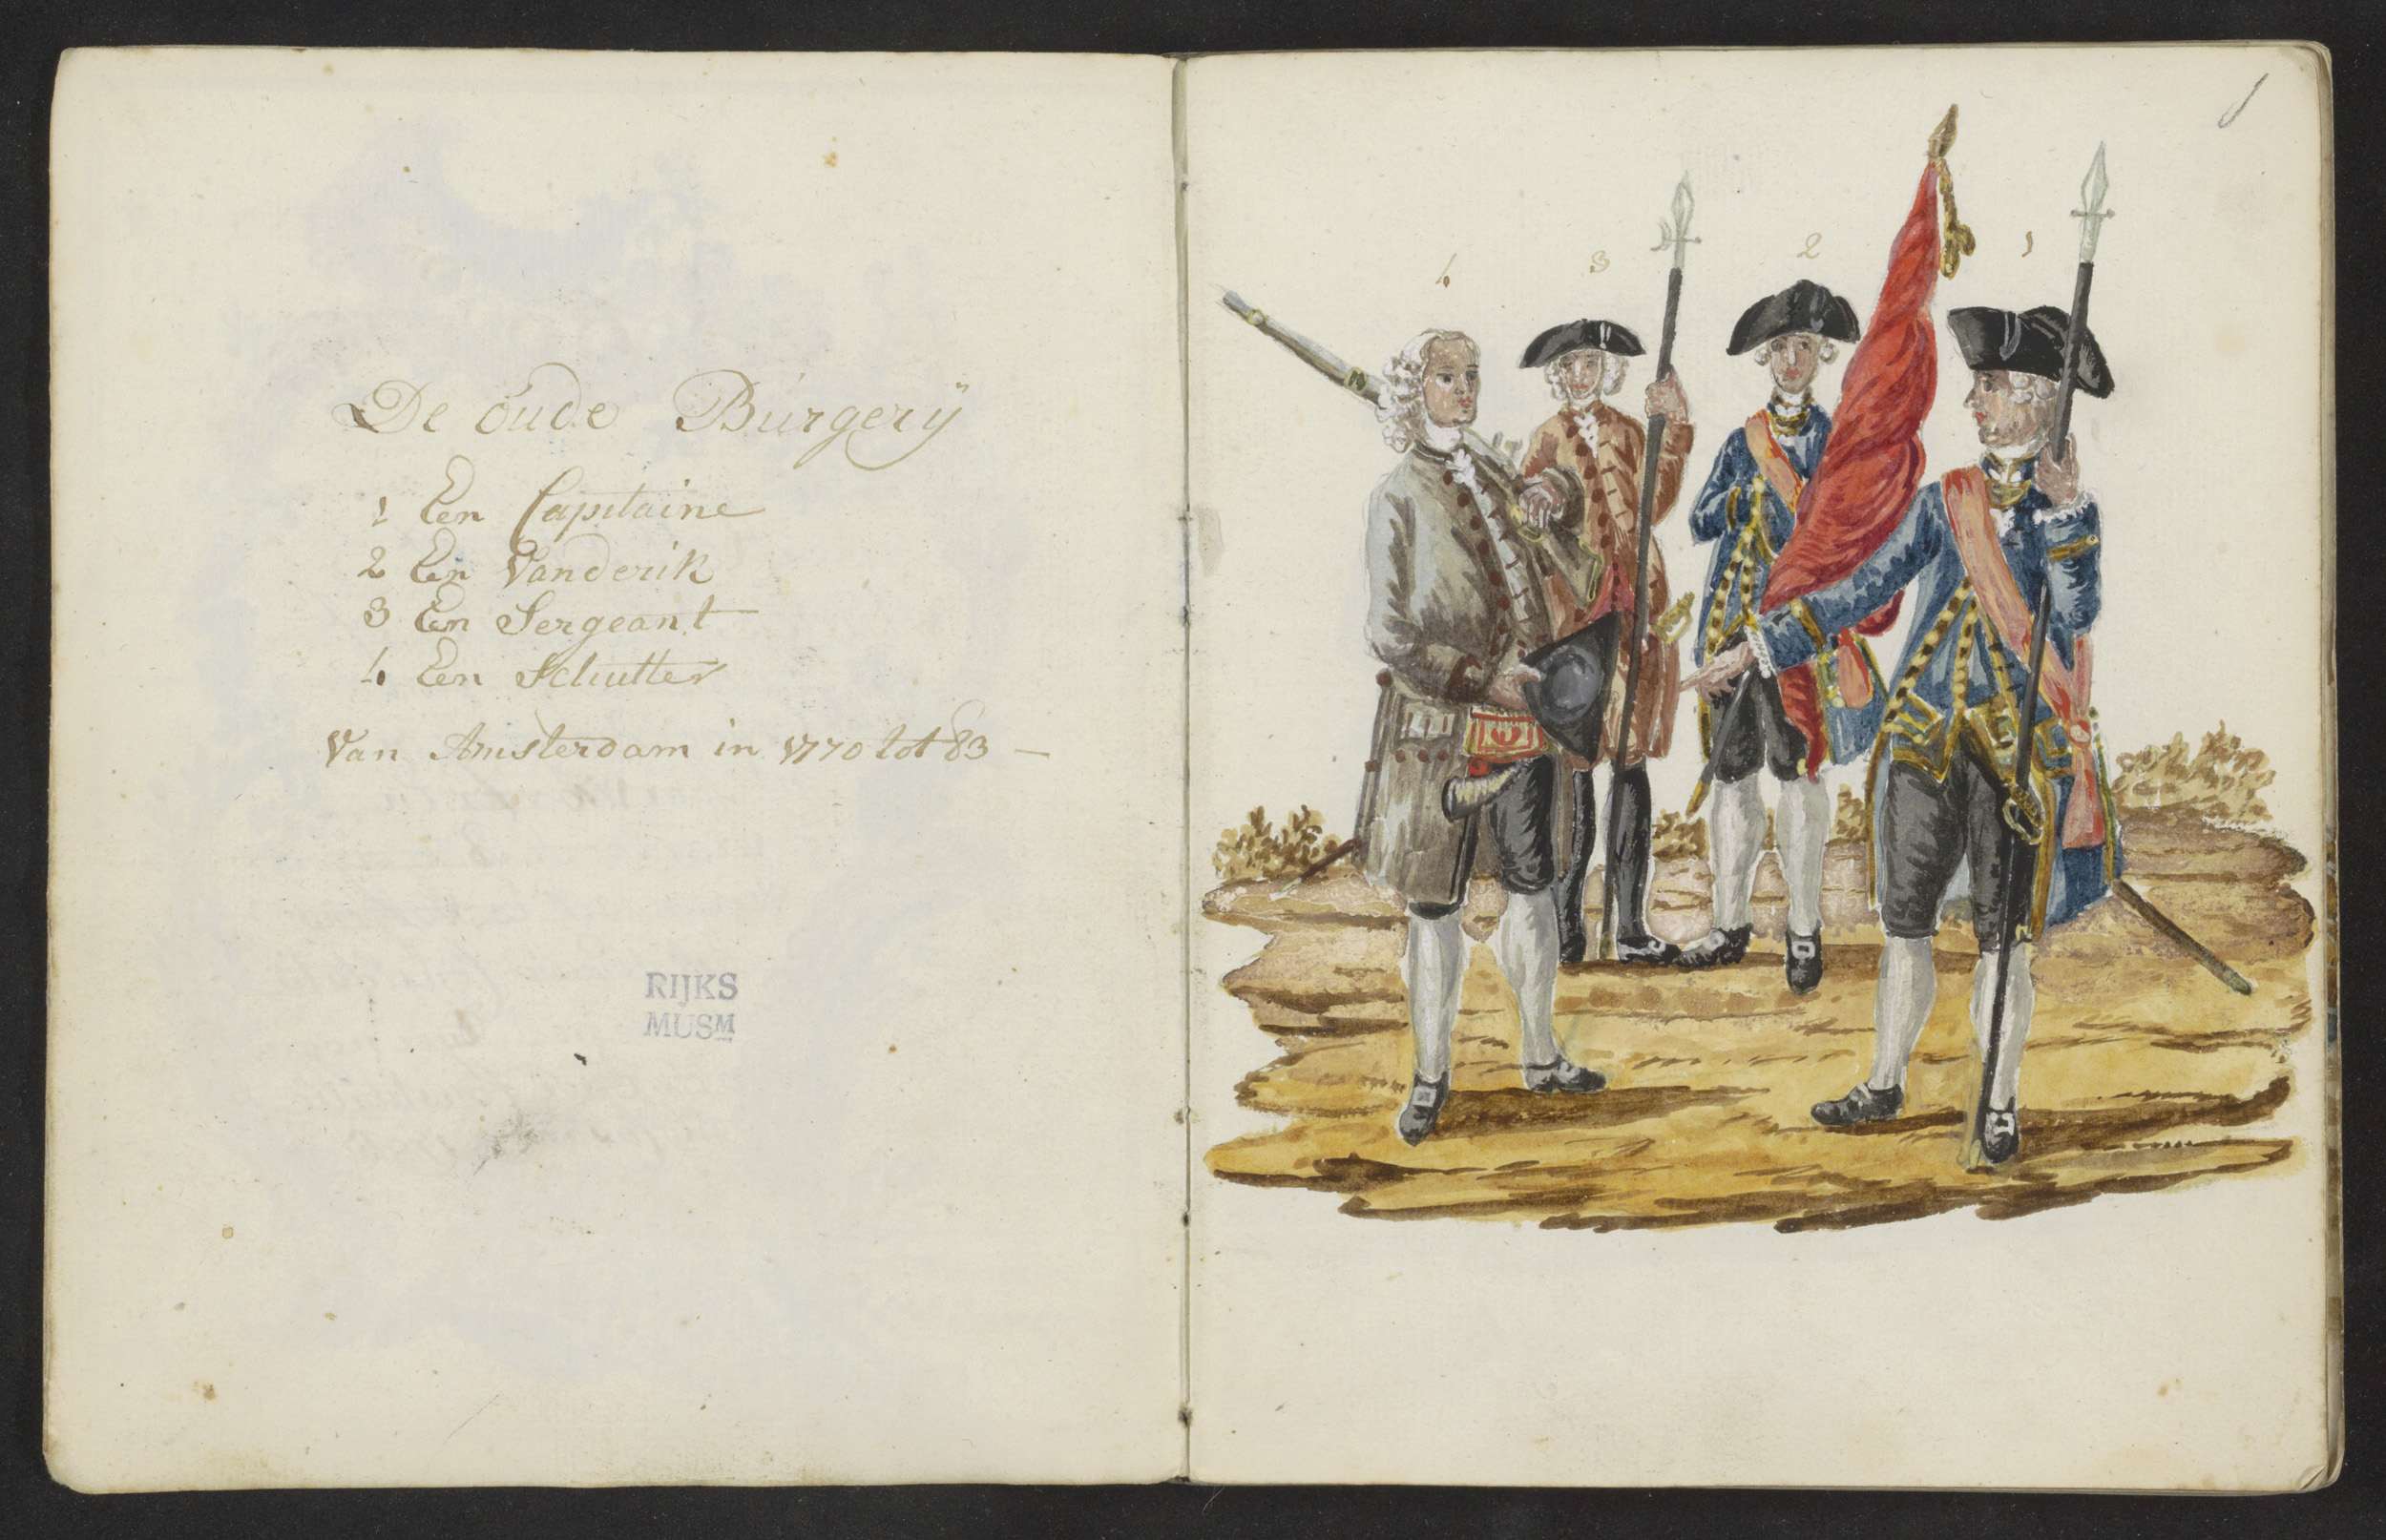 De oude Burgerÿ
1 Een Capitaine
2 Een Vanderik
3 Een Sergeant
4 Een Schutter
Van Amsterdam in 1770 tot 83 —
RIJKS
MUSM
1
4 3 2 1